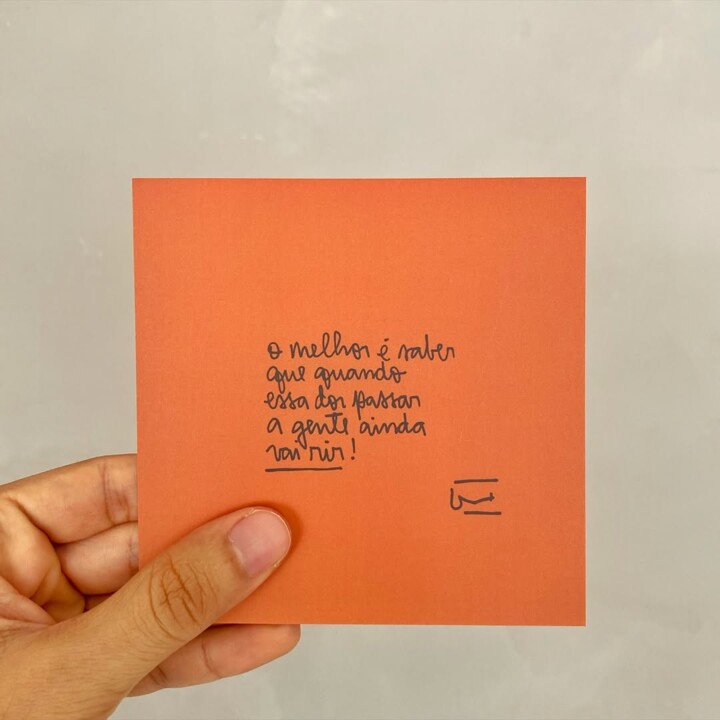 o melhor é saber
que quando
essa dor passar
a gente ainda
vai rir!